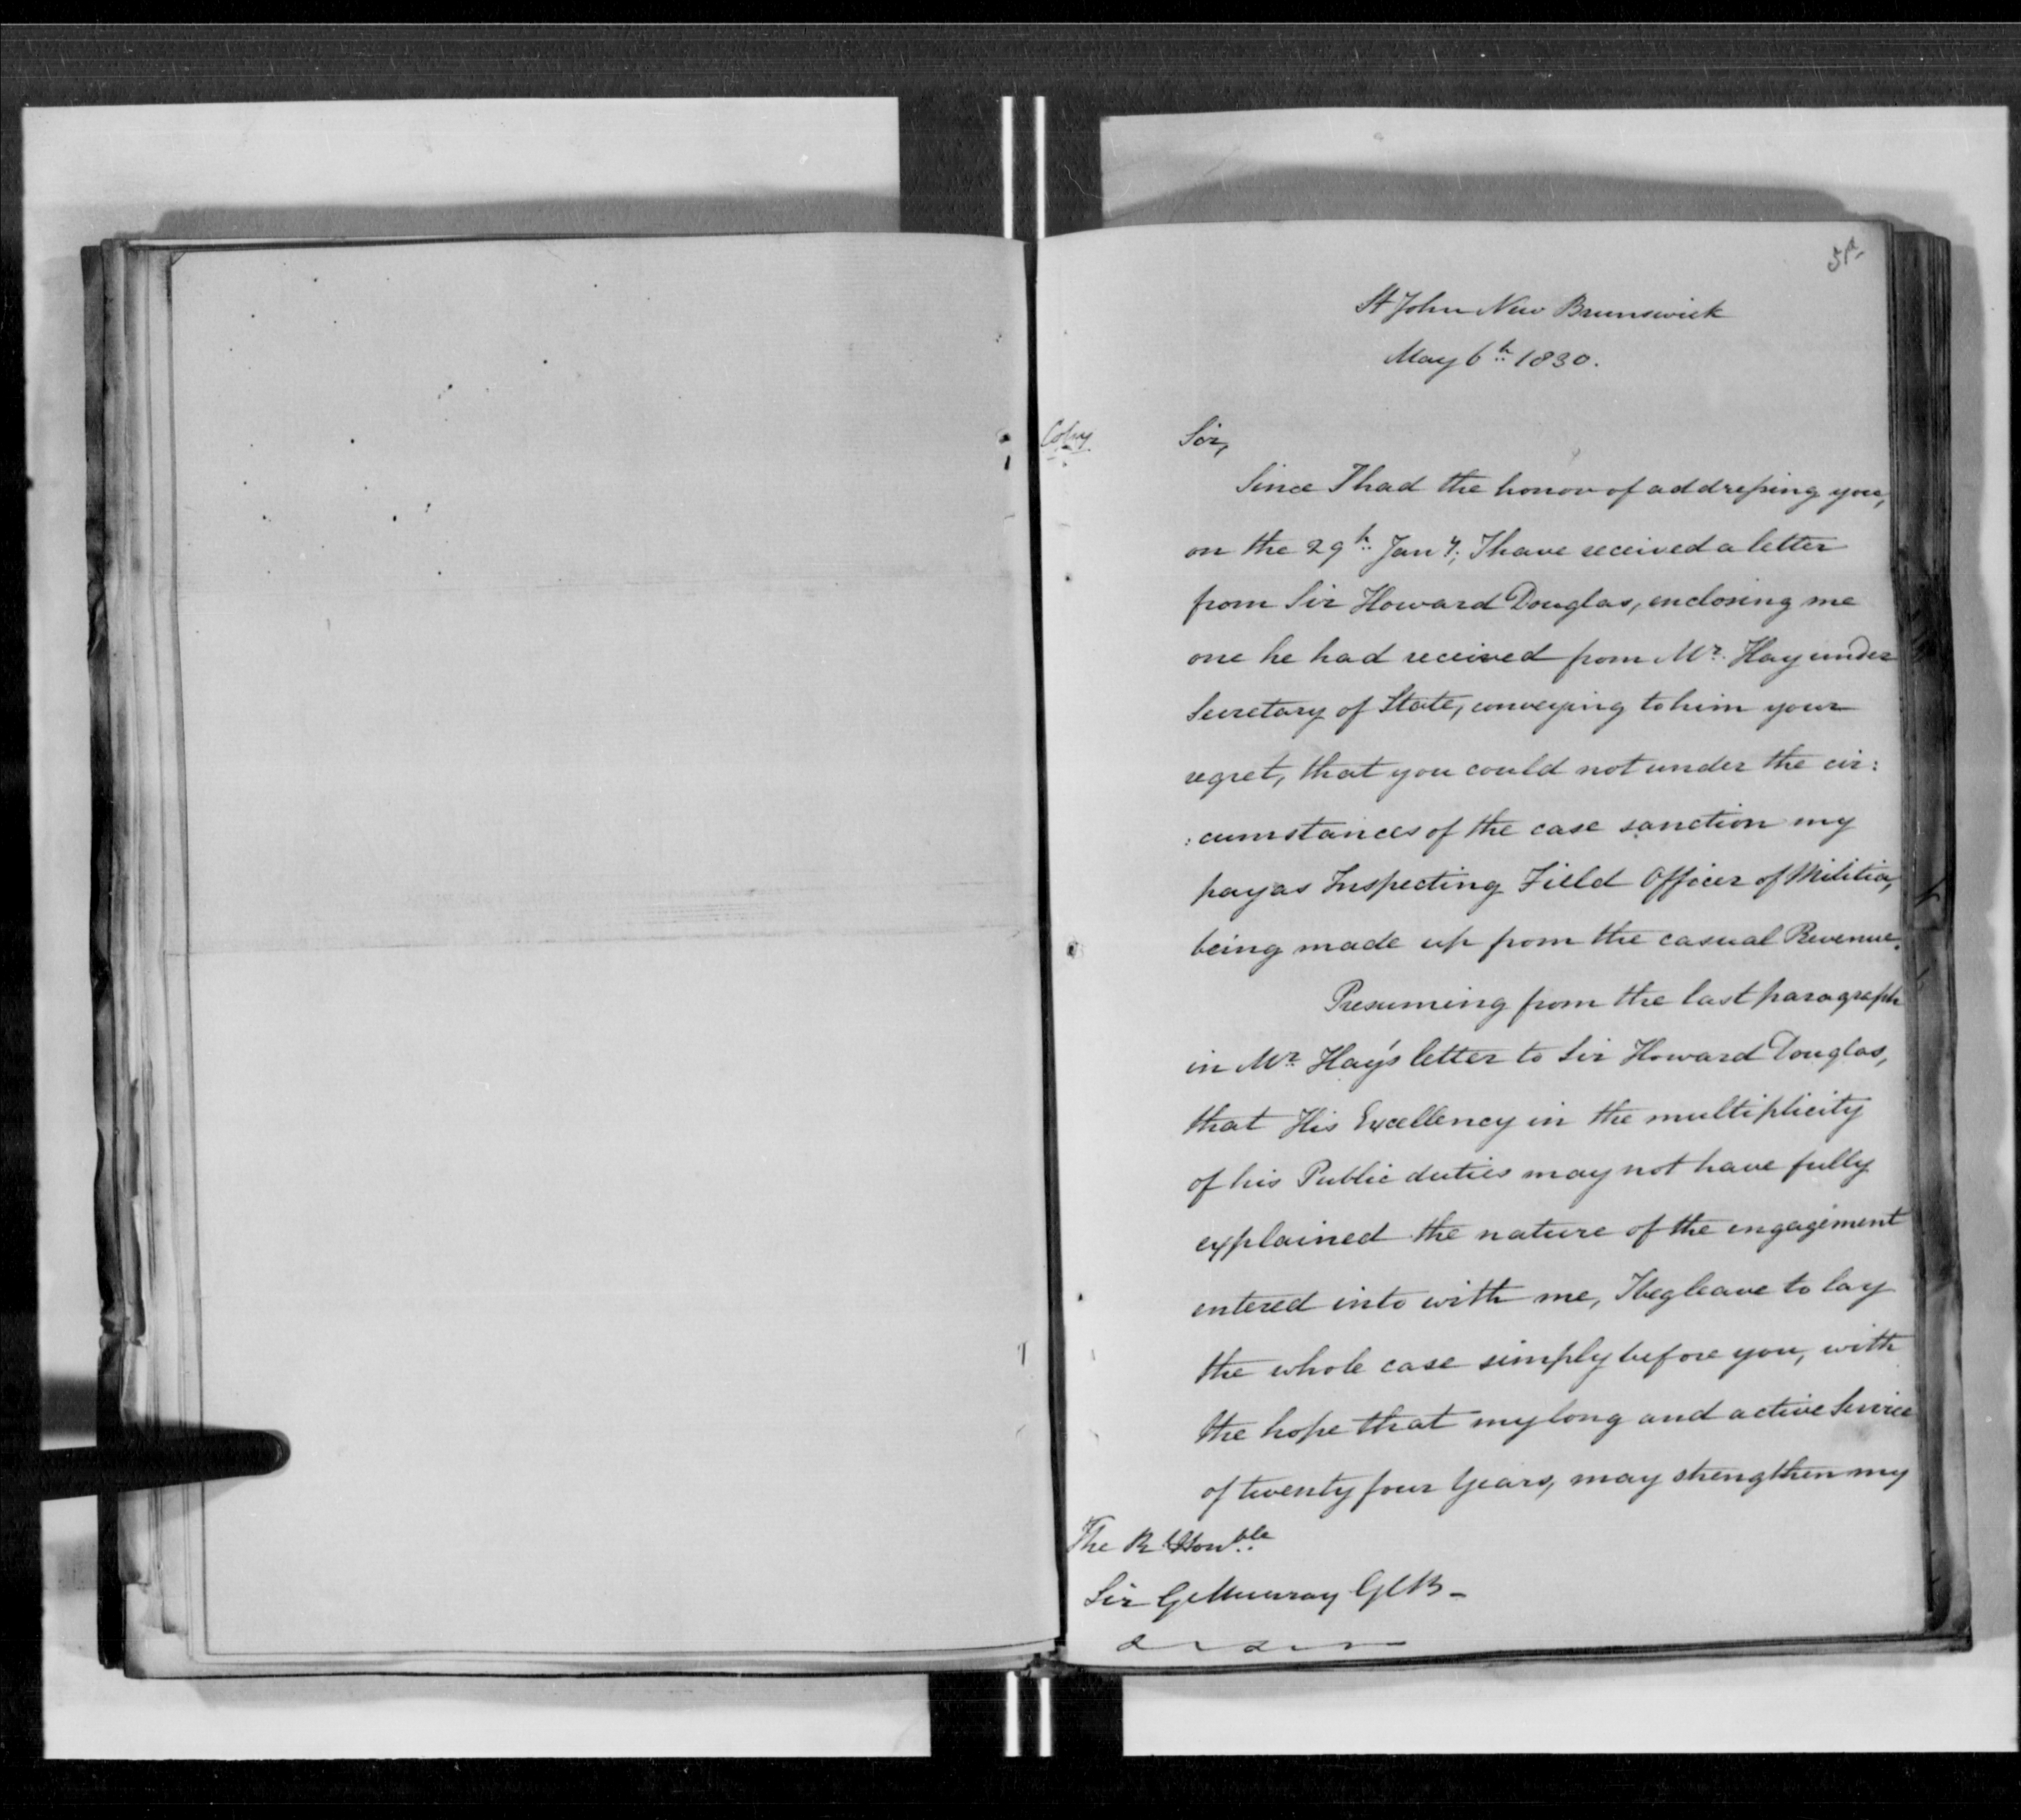 St John New Brunswick
May 6th 1830.
Copy
Sir,
Since I had the honor of addressing you,
on the 29th Jany, I have received a letter
from Sir Howard Douglas, enclosing me
one he had received from Mr. Hay under
Secretary of State, conveying to him your
regret, that you could not under the cir:
:cumstances of the case sanction my
pay as Inspecting Field Officer of Militia,
being made up from the casual Revenue.
Presuming from the last paragraph
in Mr. Hay's letter to Sir Howard Douglas,
that His Excellency in the multiplicity
of his Public duties may not have fully
explained the nature of the engagement
entered into with me, I beg leave to lay
the whole case simply before you, with
the hope that my long and active Service
of twenty four Years, may strengthen my
The Rt. Honble
Sir G Murray GCB -